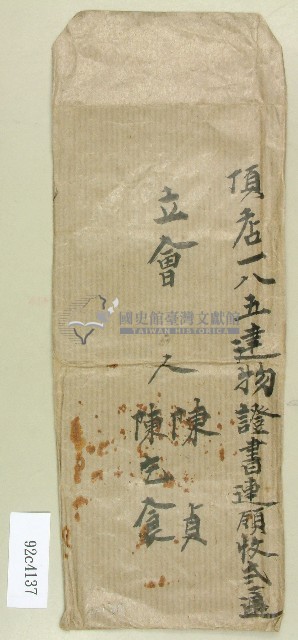 頂店一八五達物證書連願收弍通
立會人
陳貞
陳乞食
國史館臺灣文獻館
TAIWAN HISTORICA
92c4137